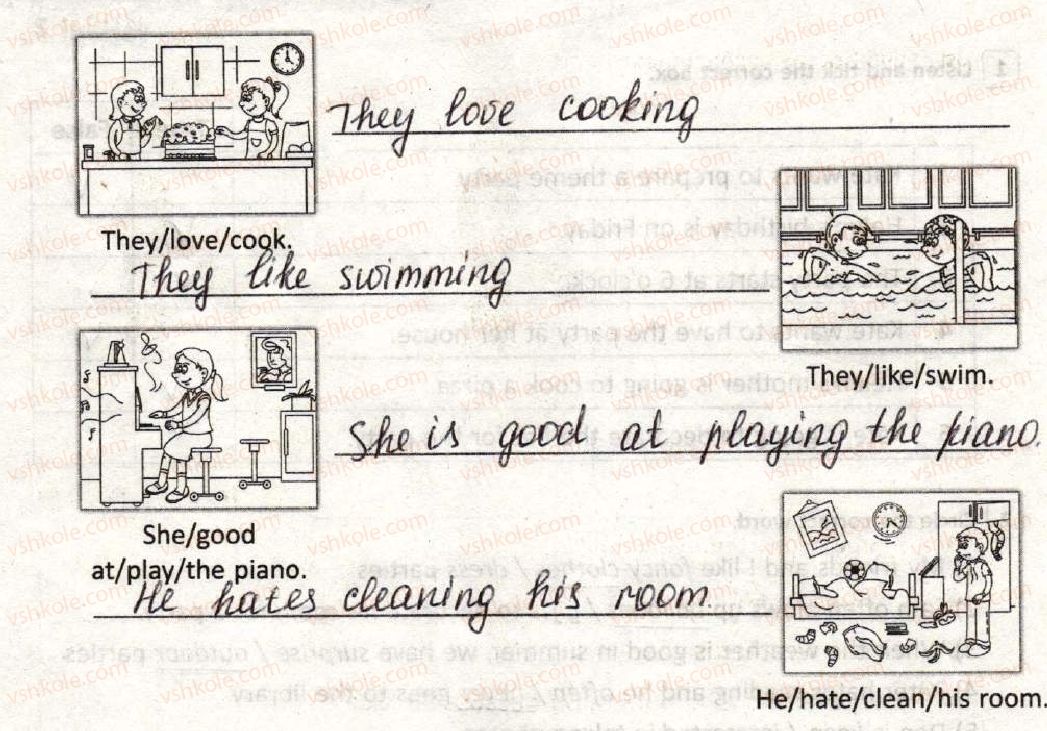 They love cooking
They/love/cook.
They like swimming
They/like/swim.
She is good at playing the piano.
She/good
at/play/the piano.
He hates cleaning his room.
He/hate/clean/his room.
vshkole.com